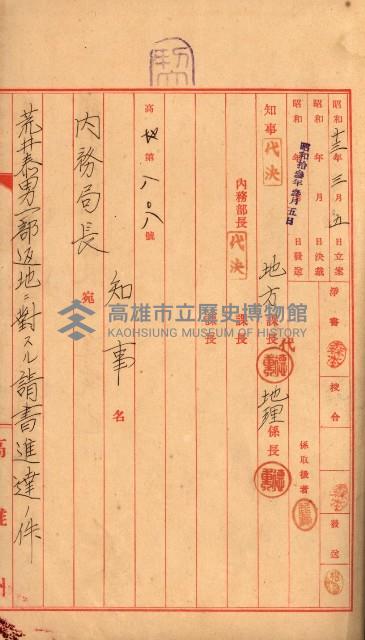 昭和十三年三月五日立案
昭和　年　月　日決裁
昭和　年　月　日發送
昭和拾參年參月五日
淨書
校合
發送
係取扱者
知事　代決
內務部長　代決
地方課長　代
地理係長
課長
課長
高地第一八〇八號
內務局長　宛
知事　名
荒井泰男一部返地ニ對スル請書進達ノ件
高雄州
高雄市立歷史博物館
KAOHSIUNG MUSEUM OF HISTORY